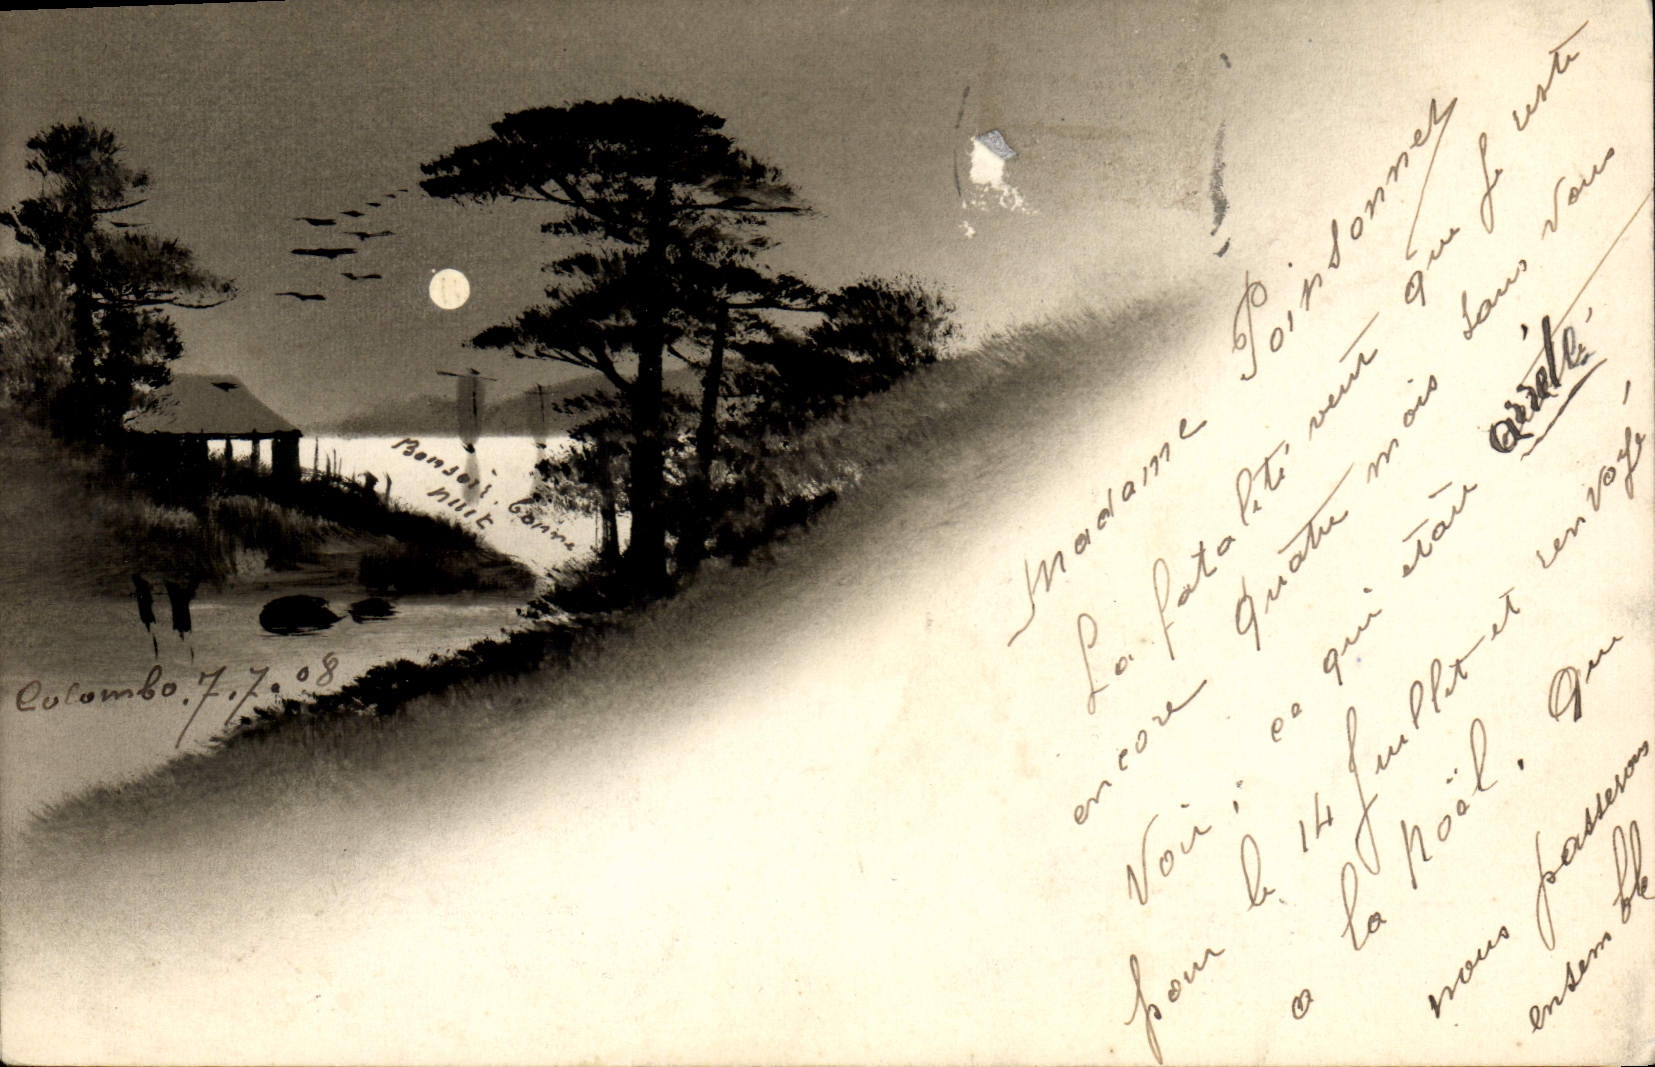 Colombo. 7. 7. 08
Bonsoir. bonne
nuit
Madame Poinsonnet
La fatalité veut que je reste
encore quatre mois sans vous
voir; ce qui était arrêté
pour le 14 Juillet et renvoyé
a la Noël. Que
nous passerons
ensemble